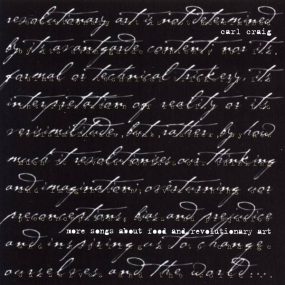 revolutionary art is not determined
carl craig
by its avantgarde content, nor its
formal or technical trickery, its
interpretation of reality or its
verisimilitude, but, rather, by how
much it revolutionises our thinking
and imagination, overturning our
preconceptions, bias and prejudice
more songs about food and revolutionary art
and inspiring us to change
ourselves and the world....